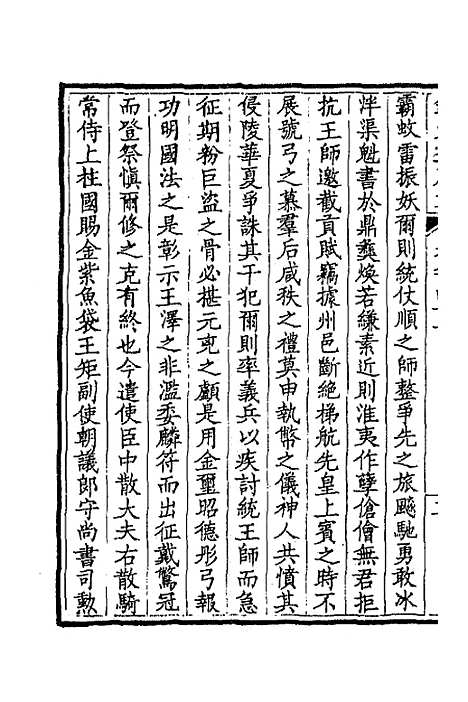 霸蚊雷振妖爾則統仗順之師整爭先之旅飈馳勇敢冰
泮渠魁書於鼎彝煥若縑素近則淮夷作孽傖儈無君拒
抗王師邀截貢賦竊據州邑斷絕梯航先皇上賓之時不
展號弓之慕羣后咸秩之禮莫申執幣之儀神人共憤其
侵陵華夏爭誅其干犯爾則率義兵以疾討統王師而急
征期粉巨盜之骨必椹元兇之顱是用金璽昭德彤弓報
功明國法之是彰示王澤之非濫委麟符而出征戴鶩冠
而登祭愼爾修之克有終也今遣使臣中散大夫右散騎
常侍上柱國賜金紫魚袋王矩副使朝議郎守尚書司勲